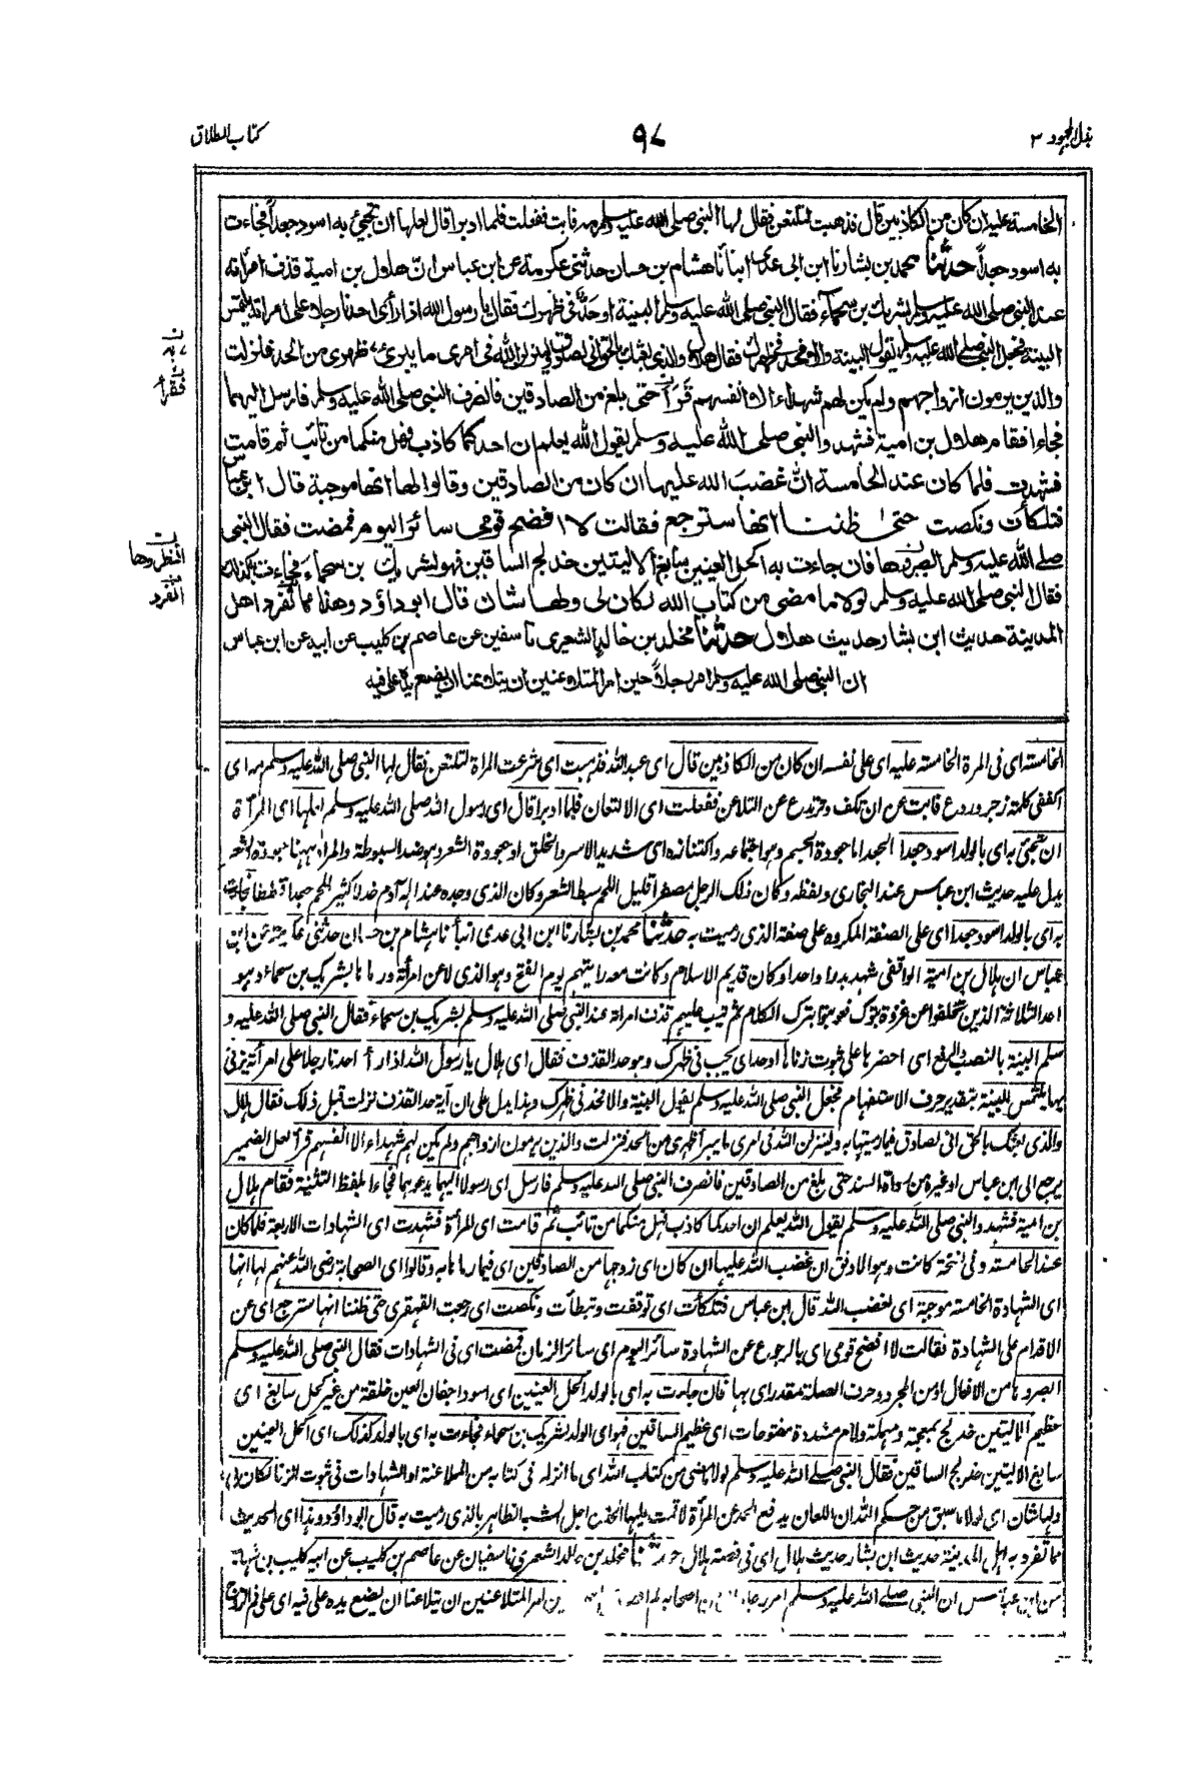 بذل المجهود ٣
٩٧
كتاب الطلاق
الخامسة عليه ان كان من الكاذبين قال فذهبت لتلتعن فقال لها النبي صلى الله عليه وسلم مه فابت ففعلت فلما ادبرا قال لعلها ان تجيئ به اسود جعداً فجاءت
به اسود جعداً حدثنا محمد بن بشار نا ابن ابي عدي انبأنا هشام بن حسان حدثني عكرمة عن ابن عباس ان هلال بن امية قذف امرأته
عند النبي صلى الله عليه وسلم بشريك بن سحماء فقال النبي صلى الله عليه وسلم البينة او حدٌّ في ظهرك فقال يا رسول الله اذا رأى احدنا رجلا على امرأته يلتمس
البينة فجعل النبي صلى الله عليه وسلم يقول البينة والا فحد في ظهرك فقال هلال والذي بعثك بالحق اني لصادق ولينزلن الله في امري ما يبرئ ظهري من الحد فنزلت
والذين يرمون ازواجهم ولم يكن لهم شهداء الا انفسهم قرأ حتى بلغ من الصادقين فانصرف النبي صلى الله عليه وسلم فارسل اليهما
فجاءا فقام هلال بن امية فشهد والنبي صلى الله عليه وسلم يقول الله يعلم ان احدكما كاذب فهل منكما من تائب ثم قامت
فشهدت فلما كان عند الخامسة انّ غضبَ الله عليها ان كان من الصادقين وقالوا لها انها موجبة قال ابن عباس
فتلكأت ونكصت حتى ظننا انها سترجع فقالت لا افضح قومي سائر اليوم فمضت فقال النبي
صلى الله عليه وسلم ابصروها فان جاءت به اكحل العينين سابغ الاليتين خدلج الساقين فهو لشريك بن سحماء فجاءت به كذلك
فقال النبي صلى الله عليه وسلم لولا ما مضى من كتاب الله لكان لي ولها شان قال ابو داؤد وهذا مما تفرد اهل
المدينة حديث ابن بشار حديث هلال حدثنا مخلد بن خالد الشعيري نا سفين عن عاصم بن كليب عن ابيه عن ابن عباس
ان النبي صلى الله عليه وسلم امر رجلاً حين امر المتلاعنين ان يتلاعنا ان يضع يده على فيه
فقرأ
انظروها
انفرد
الخامسة اي في المرة الخامسة عليه اي على نفسه ان كان من الكاذبين قال اي عبد الله فذهبت اي شرعت المرأة لتلتعن فقال لها النبي صلى الله عليه وسلم مه اي
اكففي كلمة زجر وردع فابت عن ان تكف وترتدع عن التلاعن ففعلت اي الالتعان فلما ادبرا قال اي رسول الله صلى الله عليه وسلم لعلها اي المرأة
ان تجيئ به اي بالولد اسود جعدا الجعد اما جعودة الجسم وهو اجتماعه واكتنازه اي شديد الاسر والخلق او جعودة الشعر وهو ضد السبوطة والمراد ههنا جعودة الشعر
يدل عليه حديث ابن عباس عند البخاري ولفظه وكان ذلك الرجل مصفرا قليل اللحم سبط الشعر وكان الذي وجده عند اهله آدم خدلا كثير اللحم جعدا قططا فجاءت
به اي بالولد اسود جعدا اي على الصفة المكروه على صفة الذي رميت به حدثنا محمد بن بشار نا ابن ابي عدي انبأنا هشام بن حسان حدثني عكرمة عن ابن
عباس ان هلال بن امية الواقفي شهد بدرا واحدا وكان قديم الاسلام وكانت معه رايتهم يوم الفتح وهو الذي لاعن امرأته ورماها بشريك بن سحماء وهو
احد الثلاثة الذين تخلفوا عن غزوة تبوك فعوتبوا بترك الكلام ثم تيب عليهم قذف امرأته عند النبي صلى الله عليه وسلم بشريك بن سحماء فقال النبي صلى الله عليه و
سلم البينة بالنصب والرفع اي احضرها على ثبوت زناها او حد اي يجب في ظهرك وهو حد القذف فقال اي هلال يا رسول الله اذا رأى احدنا رجلا على امرأته يزني
بها يلتمس البينة بتقدير حرف الاستفهام فجعل النبي صلى الله عليه وسلم يقول البينة والا فحد في ظهرك وهذا يدل على ان آية حد القذف نزلت قبل ذلك فقال هلال
والذي بعثك بالحق اني لصادق فيما رميتها به ولينزلن الله في امري ما يبرأ ظهري من الحد فنزلت والذين يرمون ازواجهم ولم يكن لهم شهداء الا انفسهم قرأ لعل الضمير
يرجع الى ابن عباس او غيره من رواة السند حتى بلغ من الصادقين فانصرف النبي صلى الله عليه وسلم فارسل اي رسولا اليهما يدعوهما فجاءا بلفظ التثنية فقام هلال
بن امية فشهد والنبي صلى الله عليه وسلم يقول الله يعلم ان احدكما كاذب فهل منكما من تائب ثم قامت اي المرأة فشهدت اي الشهادات الاربعة فلما كان
عند الخامسة وفي نسخة كانت وهو الاوفق ان غضب الله عليها ان كان اي زوجها من الصادقين اي فيما رماها به وقالوا اي الصحابة رضي الله عنهم لها انها
اي الشهادة الخامسة موجبة اي لغضب الله قال ابن عباس فتلكأت اي توقفت وتبطأت ونكصت اي رجعت القهقرى حتى ظننا انها سترجع اي عن
الاقدام على الشهادة فقالت لا افضح قومي اي بالرجوع عن الشهادة سائر اليوم اي سائر الزمان فمضت اي في الشهادات فقال النبي صلى الله عليه وسلم
ابصروها من الافعال او من المجرد وحرف الصلة مقدر اي بها فان جاءت به اي بالولد اكحل العينين اي اسود اجفان العين خلقة من غير كحل سابغ اي
عظيم الاليتين خدلج بمعجمة ومهملة ولام مشددة مفتوحات اي عظيم الساقين فهو اي الولد لشريك بن سحماء فجاءت به اي بالولد كذلك اي اكحل العينين
سابغ الاليتين خدلج الساقين فقال النبي صلى الله عليه وسلم لولا ما مضى من كتاب الله اي ما انزله في كتابه من الملاعنة او الشهادات في ثبوت الزنا لكان لي
ولها شان اي لولا ما سبق من حكم الله ان اللعان يدفع الحد عن المرأة لاقمت عليها الحد من اجل الشبه الظاهر بالذي رميت به قال ابو داؤد وهذا اي الحديث
مما تفرد به اهل المدينة حديث ابن بشار حديث هلال اي في قصة هلال حدثنا مخلد بن خالد الشعيري نا سفيان عن عاصم بن كليب عن ابيه كليب بن شهاب
عن ابن عباس ان النبي صلى الله عليه وسلم امر رجلا اصحابه لم حين امر المتلاعنين ان يتلاعنا ان يضع يده على فيه اي على فم الزوج